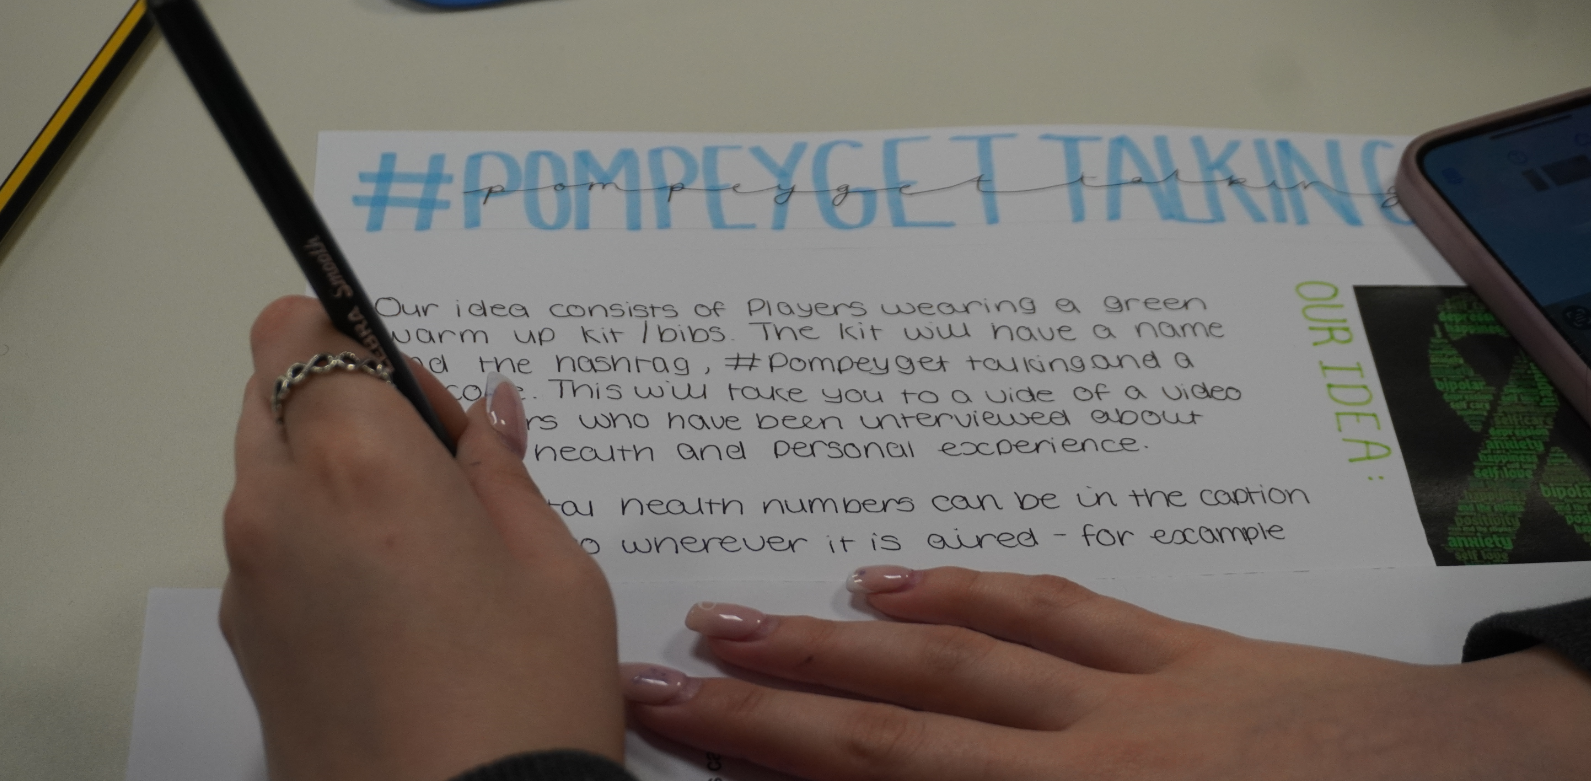 #POMPEYGET TALKING
pompeyget talking
Our idea consists of Players wearing a green
warm up kit / bibs. The kit will have a name
the hashtag, #Pompeyget talking and a
This will take you to a vide of a video
who have been interviewed about
health and personal experience.
health numbers can be in the caption
wherever it is aired - for example
OUR IDEA:
bipolar
anxiety
self love
bipola
anxiety
ZEBRA Smooth